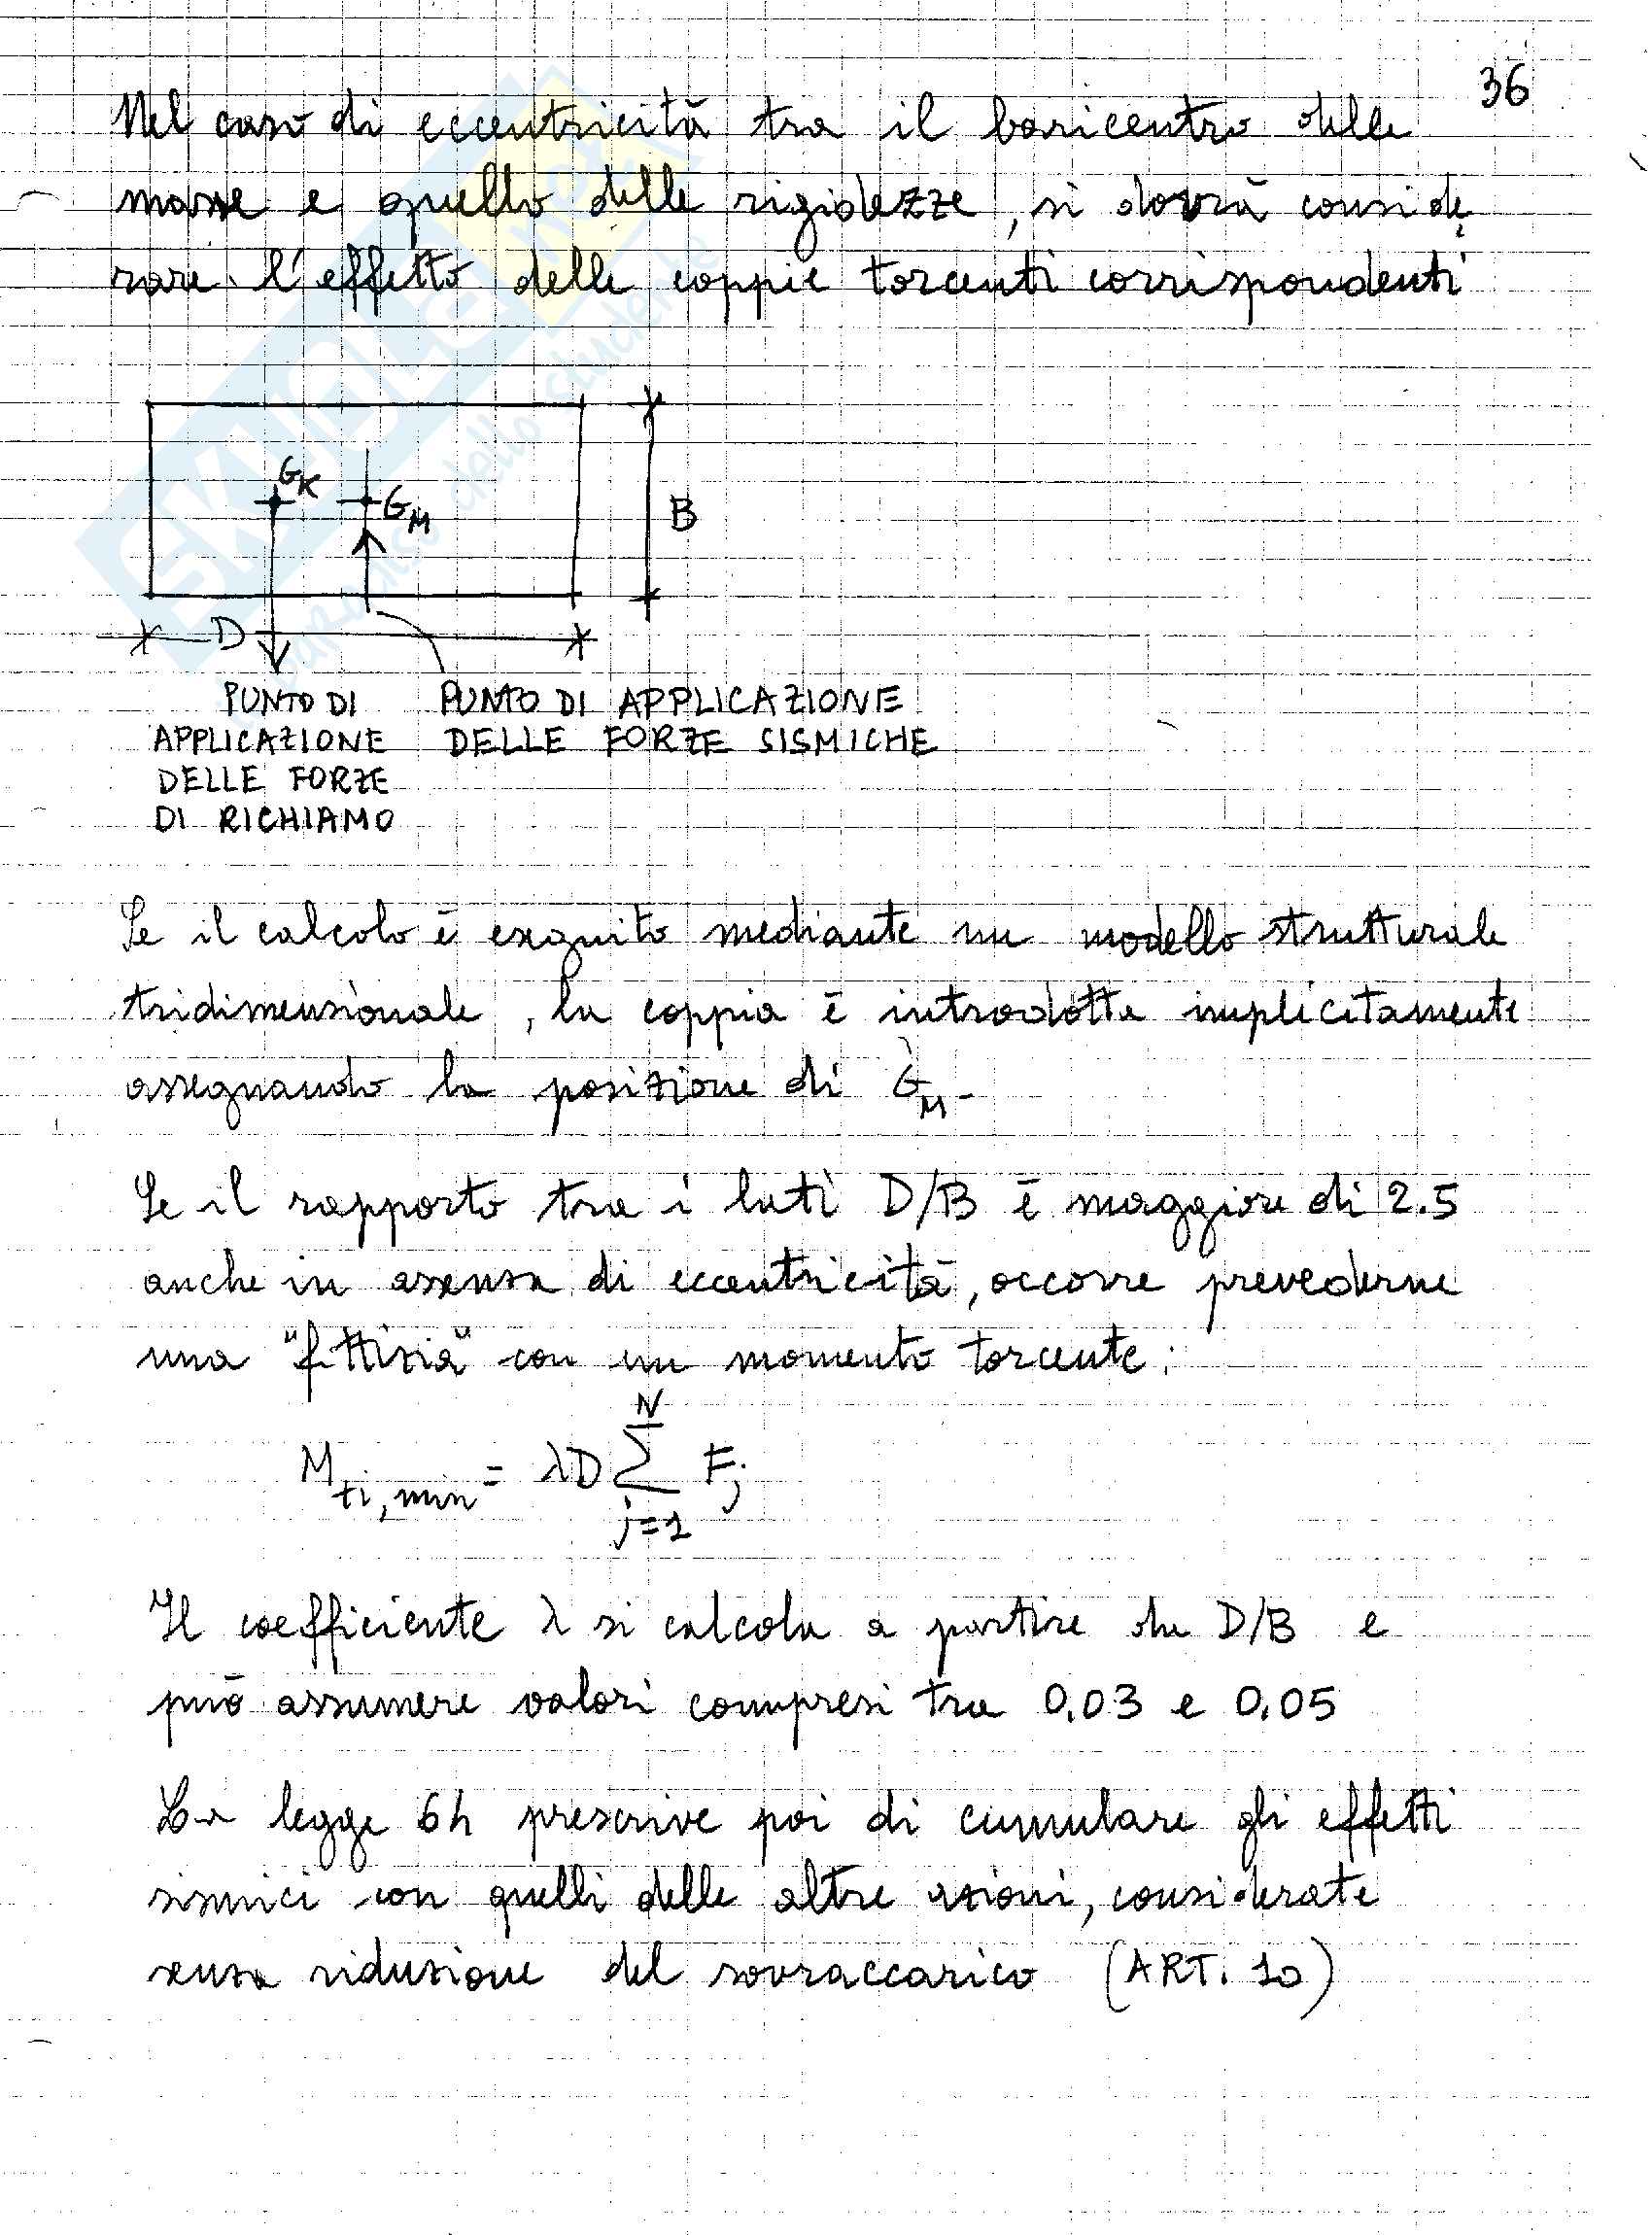 36
Nel caso di eccentricità tra il baricentro delle
masse e quello delle rigidezze, si dovrà conside
rare l'effetto delle coppie torcenti corrispondenti
G_K
G_M
B
D
PUNTO DI
APPLICAZIONE
DELLE FORZE
DI RICHIAMO
PUNTO DI APPLICAZIONE
DELLE FORZE SISMICHE
Se il calcolo è eseguito mediante un modello strutturale
tridimensionale, la coppia è introdotta implicitamente
assegnando la posizione di G_M.
Se il rapporto tra i lati D/B è maggiore di 2.5
anche in assenza di eccentricità, occorre prevederne
una "fittizia" con un momento torcente:
M_{ti,min} = λD \sum_{j=1}^{N} F_j
Il coefficiente λ si calcola a partire da D/B e
può assumere valori compresi tra 0.03 e 0.05
La legge 64 prescrive poi di cumulare gli effetti
sismici con quelli delle altre azioni, considerate
senza riduzione del sovraccarico (ART. 10)
SKUOLA.net